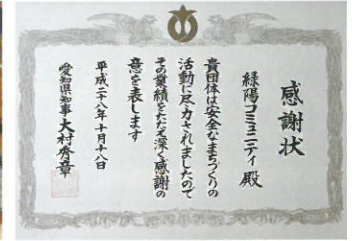 感謝状
緑陽コミュニティ殿
貴団体は安全なまちづくりの
活動に尽力されましたので
その業績をたたえ深く感謝の
意を表します
平成二十八年十月十八日
愛知県知事大村秀章